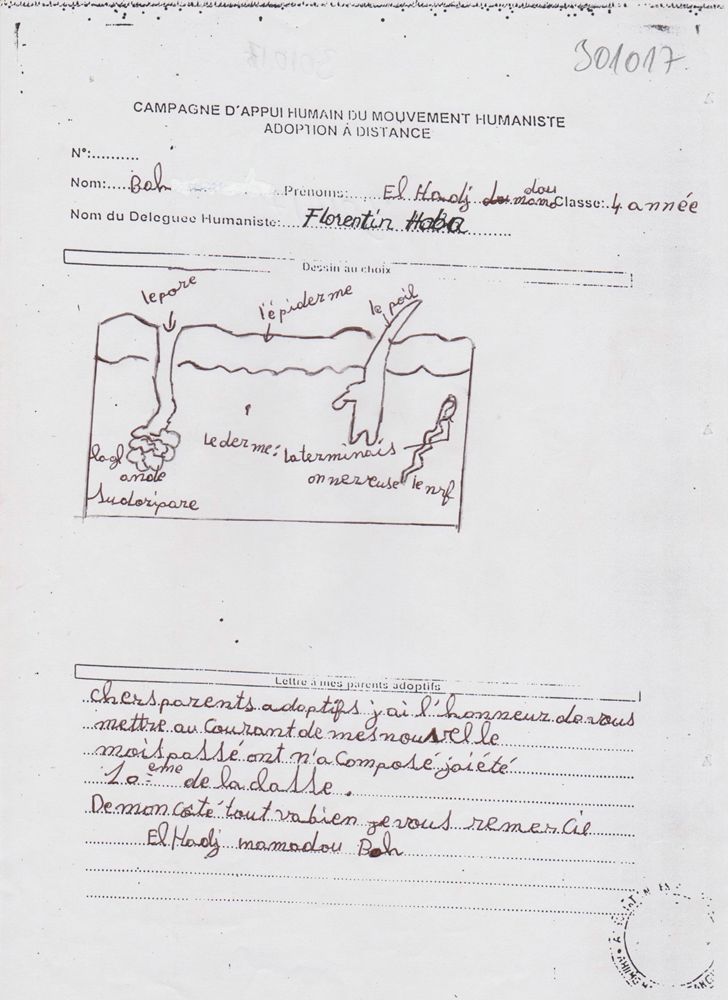 301017
CAMPAGNE D'APPUI HUMAIN DU MOUVEMENT HUMANISTE
ADOPTION À DISTANCE
N°:..........
Nom:.....Bah Prénoms:..... El Hadj mamadou Classe:.4 année
Nom du Deleguee Humaniste:.... Florentin Haba
Dessin au choix
le pore
l'épiderme
le poil
le derme: la terminais
onnerveuse
le nrf
la gl
ande
Sudoripare
Lettre à mes parents adoptifs
chersparents adoptifs j'ai l'honneur de vous
mettre au Courant de mes nouvelle
mois passé ont n'a Composé jaiété
10ème de la classe.
De mon Côté tout va bien je vous remercie
El Hadj mamadou Bah